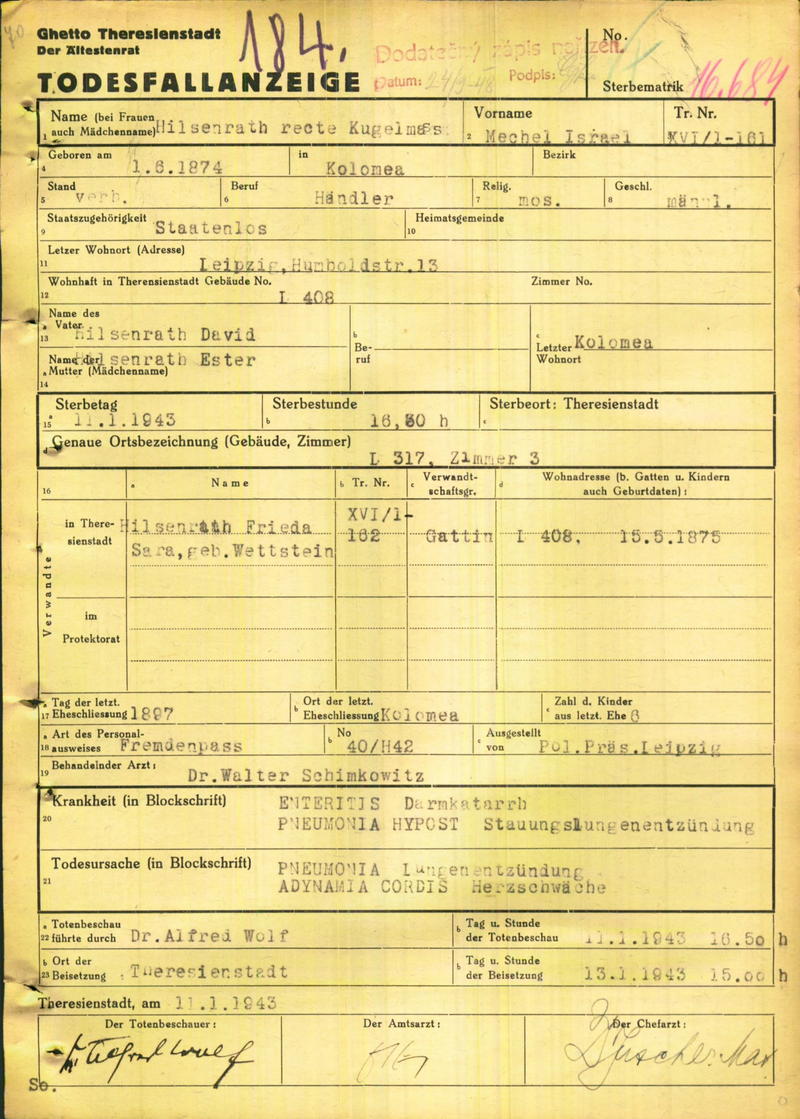 Ghetto Theresienstadt
Der Ältestenrat
TODESFALLANZEIGE
184.
Dodatečný zápis
Datum:
Podpis:
No.
Sterbematrik 16.684
Name (bei Frauen auch Mädchenname) Hilsenrath recte Kugelmass
1
Vorname
2 Mechel Israel
Tr. Nr.
XVI/1-161
Geboren am
4 1.6.1874
in
Kolomea
Bezirk
Stand
5 verh.
Beruf
6 Händler
Relig.
7 mos.
Geschl.
8 männl.
Staatszugehörigkeit
9 Staatenlos
Heimatsgemeinde
10
Letzer Wohnort (Adresse)
11 Leipzig,Humboldstr.13
Wohnhaft in Therensienstadt Gebäude No.
12 L 408
Zimmer No.
Name des
a Vater
13 Hilsenrath David
b
Be-
ruf
c
Letzter Kolomea
Wohnort
Name der Hilsenrath Ester
a Mutter (Mädchenname)
14
Sterbetag
15 a 11.1.1943
Sterbestunde
b 16,50 h
Sterbeort: Theresienstadt
c
d Genaue Ortsbezeichnung (Gebäude, Zimmer)
L 317, Zimmer 3
16 a Name
b Tr. Nr.
c Verwandt-
schaftsgr.
d Wohnadresse (b. Gatten u. Kindern
auch Geburtdaten):
Verwandte
in There-
sienstadt
Hilsenrath Frieda
Sara,geb.Wettstein
XVI/1-
162
Gattin
L 408, 15.5.1875
im
Protektorat
a Tag der letzt.
17 Eheschliessung 1897
b Ort der letzt.
Eheschliessung Kolomea
c Zahl d. Kinder
aus letzt. Ehe
a Art des Personal-
18 ausweises Fremdenpass
b No
40/H42
c Ausgestellt
von Pol.Präs.Leipzig
Behandelnder Arzt:
19 Dr.Walter Schimkowitz
Krankheit (in Blockschrift)
20
ENTERITIS Darmkatarrh
PNEUMONIA HYPOST Stauungslungenentzündung
Todesursache (in Blockschrift)
21
PNEUMONIA Lungenentzündung
ADYNAMIA CORDIS Herzschwäche
a Totenbeschau
22 führte durch Dr.Alfred Wolf
b Tag u. Stunde
der Totenbeschau 11.1.1943 16.50 h
b Ort der
23 Beisetzung Theresienstadt
b Tag u. Stunde
der Beisetzung 13.1.1943 15.00 h
Theresienstadt, am 11.1.1943
Der Totenbeschauer:
Der Amtsarzt:
Der Chefarzt:
So.